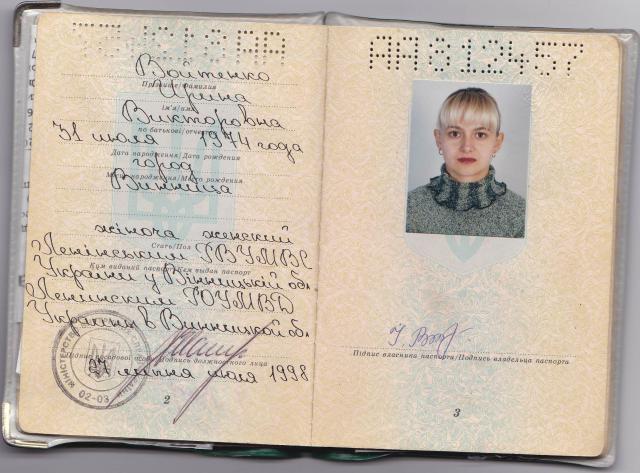 Войтенко
Прізвище/Фамилия
Ирина
ім'я/имя
Викторовна
по батькові/отчество
31 июля 1974 года
Дата народження/Дата рождения
город
Місце народження/Место рождения
Винница
жіноча женский
Стать/Пол
Ленінським РВУМВС
Ким виданий паспорт/Кем выдан паспорт
України у Вінницькій обл
Ленинским РОУМВД
Украины в Винницкой обл
Підпис посадової особи/Подпись должностного лица
27 липня июля 1998
02-03
2
АА812457
І. Войт
Підпис власника паспорта/Подпись владельца паспорта
3